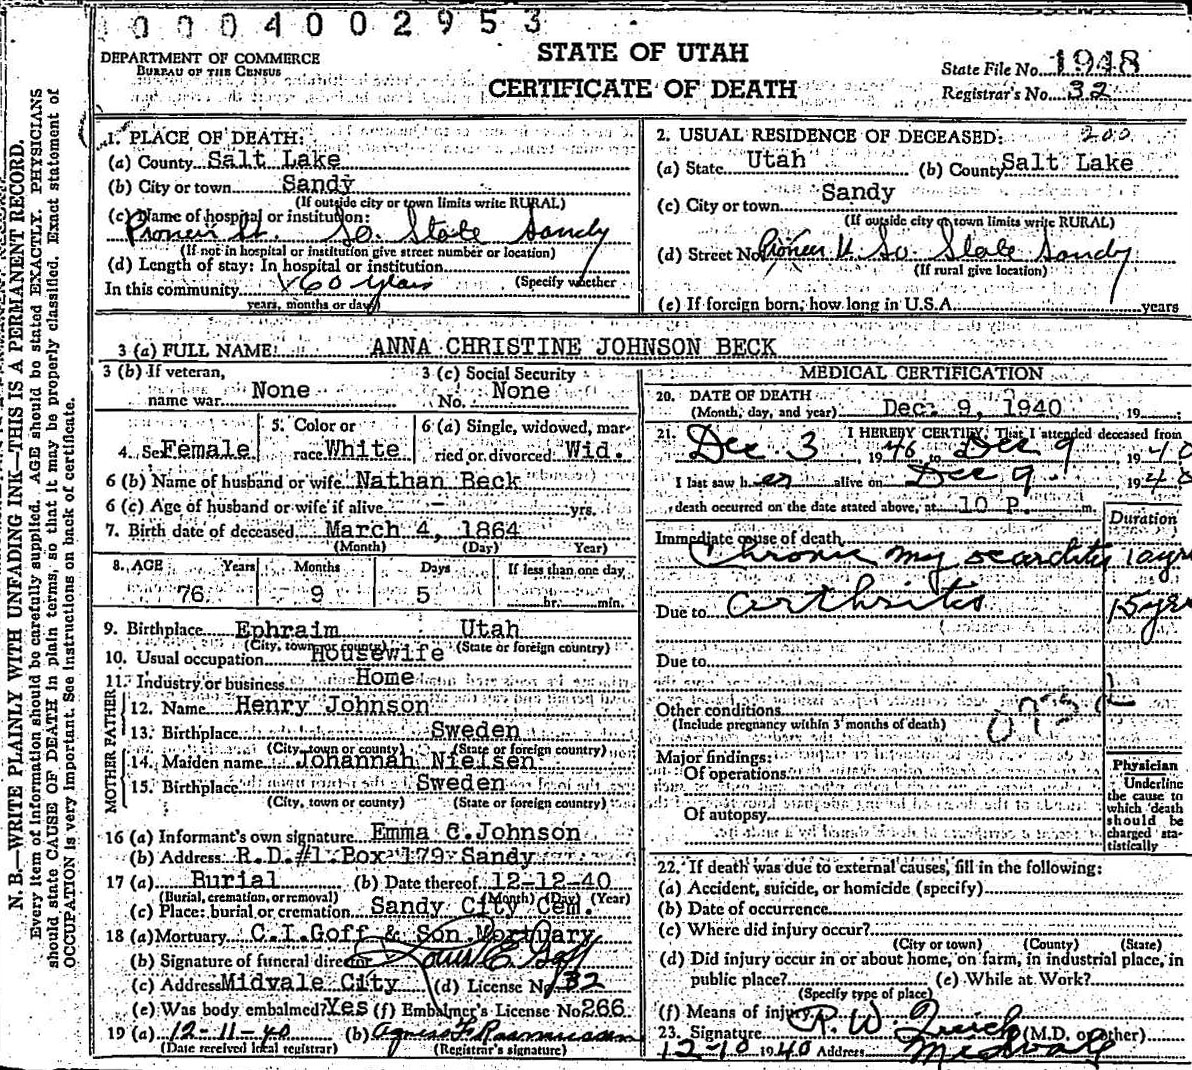 0004002953
DEPARTMENT OF COMMERCE
BUREAU OF THE CENSUS
STATE OF UTAH
CERTIFICATE OF DEATH
State File No. 1948
Registrar's No. 32
N. B.—WRITE PLAINLY WITH UNFADING INK—THIS IS A PERMANENT RECORD.
Every item of information should be carefully supplied. AGE should be stated EXACTLY. PHYSICIANS
should state CAUSE OF DEATH in plain terms, so that it may be properly classified. Exact statement of
OCCUPATION is very important. See instructions on back of certificate.
1. PLACE OF DEATH:
(a) County Salt Lake
(b) City or town Sandy
(If outside city or town limits write RURAL)
(c) Name of hospital or institution:
Pioneer St. So. State Sandy
(If not in hospital or institution give street number or location)
(d) Length of stay: In hospital or institution
(Specify whether
In this community 60 years
years, months or days)
2. USUAL RESIDENCE OF DECEASED: 200
(a) State Utah (b) County Salt Lake
(c) City or town Sandy
(If outside city or town limits write RURAL)
(d) Street No. Pioneer So. State Sandy
(If rural give location)
(e) If foreign born, how long in U.S.A. years
3 (a) FULL NAME: ANNA CHRISTINE JOHNSON BECK
3 (b) If veteran, name war None
3 (c) Social Security No. None
4. Sex Female
5. Color or race White
6 (a) Single, widowed, married or divorced: Wid.
6 (b) Name of husband or wife Nathan Beck
6 (c) Age of husband or wife if alive — yrs.
7. Birth date of deceased March 4, 1864
(Month) (Day) Year)
8. AGE Years Months Days If less than one day
76 9 5 hr. min.
9. Birthplace Ephraim Utah
(City, town or county) (State or foreign country)
10. Usual occupation Housewife
11. Industry or business Home
FATHER
12. Name Henry Johnson
13. Birthplace Sweden
(City, town or county) (State or foreign country)
MOTHER
14. Maiden name Johannah Nielsen
15. Birthplace Sweden
(City, town or county) (State or foreign country)
16 (a) Informant's own signature Emma C. Johnson
(b) Address R.D.#1 Box 179 Sandy
17 (a) Burial (b) Date thereof 12-12-40
(Burial, cremation, or removal) (Month) (Day) (Year)
(c) Place: burial or cremation Sandy City Cem.
18 (a) Mortuary C.I.Goff & Son Mortuary
(b) Signature of funeral director Louis E. Goff
(c) Address Midvale City (d) License No. 132
(e) Was body embalmed? Yes (f) Embalmer's License No 266
19 (a) 12-11-40 (b) Agnes F. Rasmussen
(Date received local registrar) (Registrar's signature)
MEDICAL CERTIFICATION
20. DATE OF DEATH
(Month, day, and year) Dec. 9, 1940 19 ;
21. I HEREBY CERTIFY, That I attended deceased from
Dec 3, 1940 to Dec 9 1940
I last saw h er alive on Dec 9. 1940
death occurred on the date stated above, at 10 P. m.
Duration
Immediate cause of death
Chronic myocarditis 10 yrs
Due to arthritis 15 yrs
Due to
Other conditions
(Include pregnancy within 3 months of death)
Major findings:
Of operations
Of autopsy
Physician
Underline
the cause to
which death
should be
charged sta-
tistically
22. If death was due to external causes, fill in the following:
(a) Accident, suicide, or homicide (specify)
(b) Date of occurrence
(c) Where did injury occur?
(City or town) (County) (State)
(d) Did injury occur in or about home, on farm, in industrial place, in
public place? (e) While at Work?
(Specify type of place)
(f) Means of injury
23. Signature R. W. (M.D. or other)
12-10 1940 Address Midvale